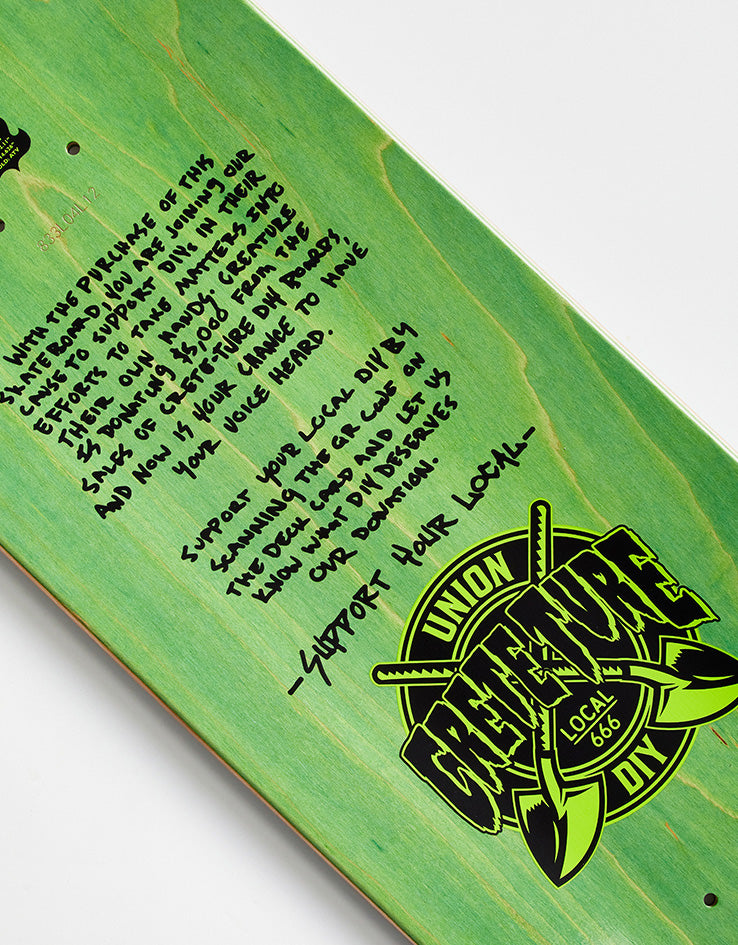 833L04L12
WITH THE PURCHASE OF THIS
SKATEBOARD, YOU ARE JOINING OUR
CAUSE TO SUPPORT DIYs IN THEIR
EFFORTS TO TAKE MATTERS INTO
THEIR OWN HANDS. CREATURE
IS DONATING $5,000 FROM THE
SALES OF CRETE-TURE DIY BOARDS,
AND NOW IS YOUR CHANCE TO HAVE
YOUR VOICE HEARD.
SUPPORT YOUR LOCAL DIY BY
SCANNING THE QR CODE ON
THE DECK CARD AND LET US
KNOW WHAT DIY DESERVES
OUR DONATION.
-SUPPORT YOUR LOCAL-
UNION
CRETETURE
LOCAL
666
DIY